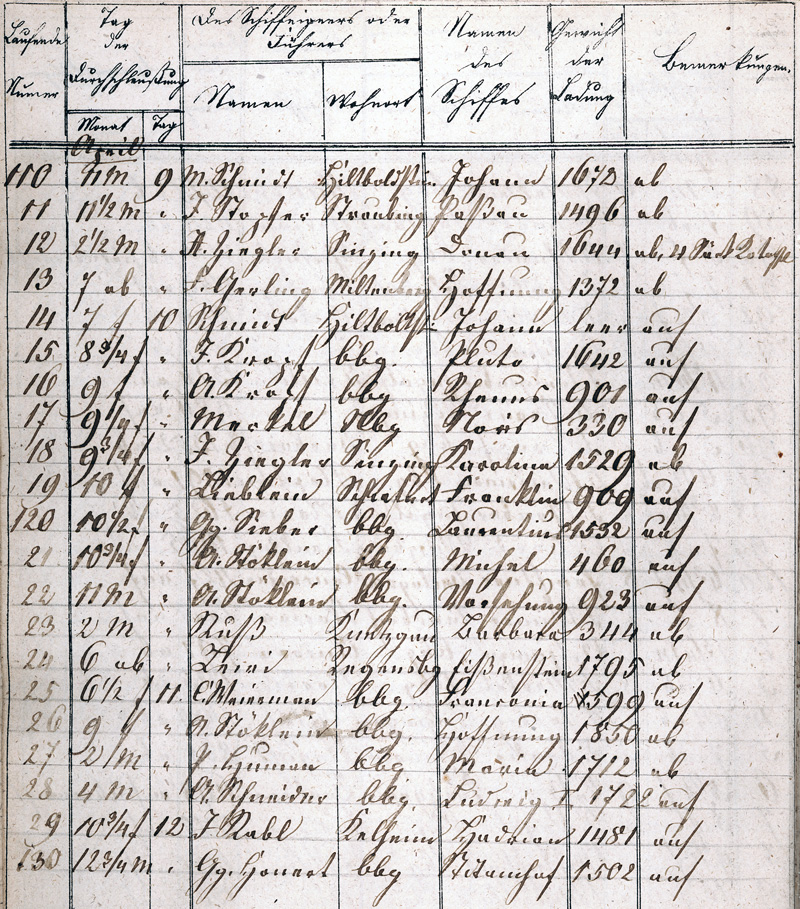 Laufende Numer | Tag der Durchschleußung | Des Schiffeigners oder Führers | Namen des Schiffes | Gewicht der Ladung | Bemerkungen.
Monat | Tag | Namen | Wohnort
April
110 | 11 M | 9 | M. Schmidt | Hiltboldstein | Johann | 1672 | ab
11 | 11 1/2 M | " | J. Stopfer | Straubing | Paßau | 1496 | ab
12 | 2 1/2 M | " | A. Ziegler | Sinzing | Donau | 1644 | ab, 4
13 | 7 ab | " | Gerling | Miltenberg | Hoffnung | 1372 | ab
14 | 7 f | 10 | Schmidt | Hiltboltst: | Johann | leer | auf
15 | 8 3/4 f | " | J. Kropf | bbg. | Pluto | 1642 | auf
16 | 9 f | " | A. Kropf | bbg | Rhenus | 901 | auf
17 | 9 1/4 f | " | Merkel | Nbg | Noris | 330 | auf
18 | 9 3/4 f | " | J. Ziegler | Sinzing | Karolina | 1529 | ab
19 | 10 f | " | Lieblein | Franklin | 909 | auf
120 | 10 1/2 f | " | Gg. Sieber | bbg. | Laurentius | 1532 | auf
21 | 10 3/4 f | " | A. Stöklein | bbg. | Michel | 460 | auf
22 | 11 M | " | A. Stöklein | bbg. | Vorsehung | 923 | auf
23 | 2 M | " | Nuß | Barbara | 344 | ab
24 | 6 ab | " | Regensbg | Eißenstein | 1795 | ab
25 | 6 1/2 f | 11 | C. Weierman | bbg. | Franconia | 1599 | auf
26 | 9 f | " | A. Stöklein | bbg. | Hoffnung | 1850 | ab
27 | 2 M | " | J. Human | bbg | Maria | 1712 | ab
28 | 4 M | " | A. Schneider | bbg. | Ludwig I. | 1722 | auf
29 | 10 3/4 f | 12 | J Rabl | Kelheim | Hadrian | 1481 | auf
130 | 12 3/4 M | " | Gg. Honert | bbg | Stitamhof | 1502 | auf